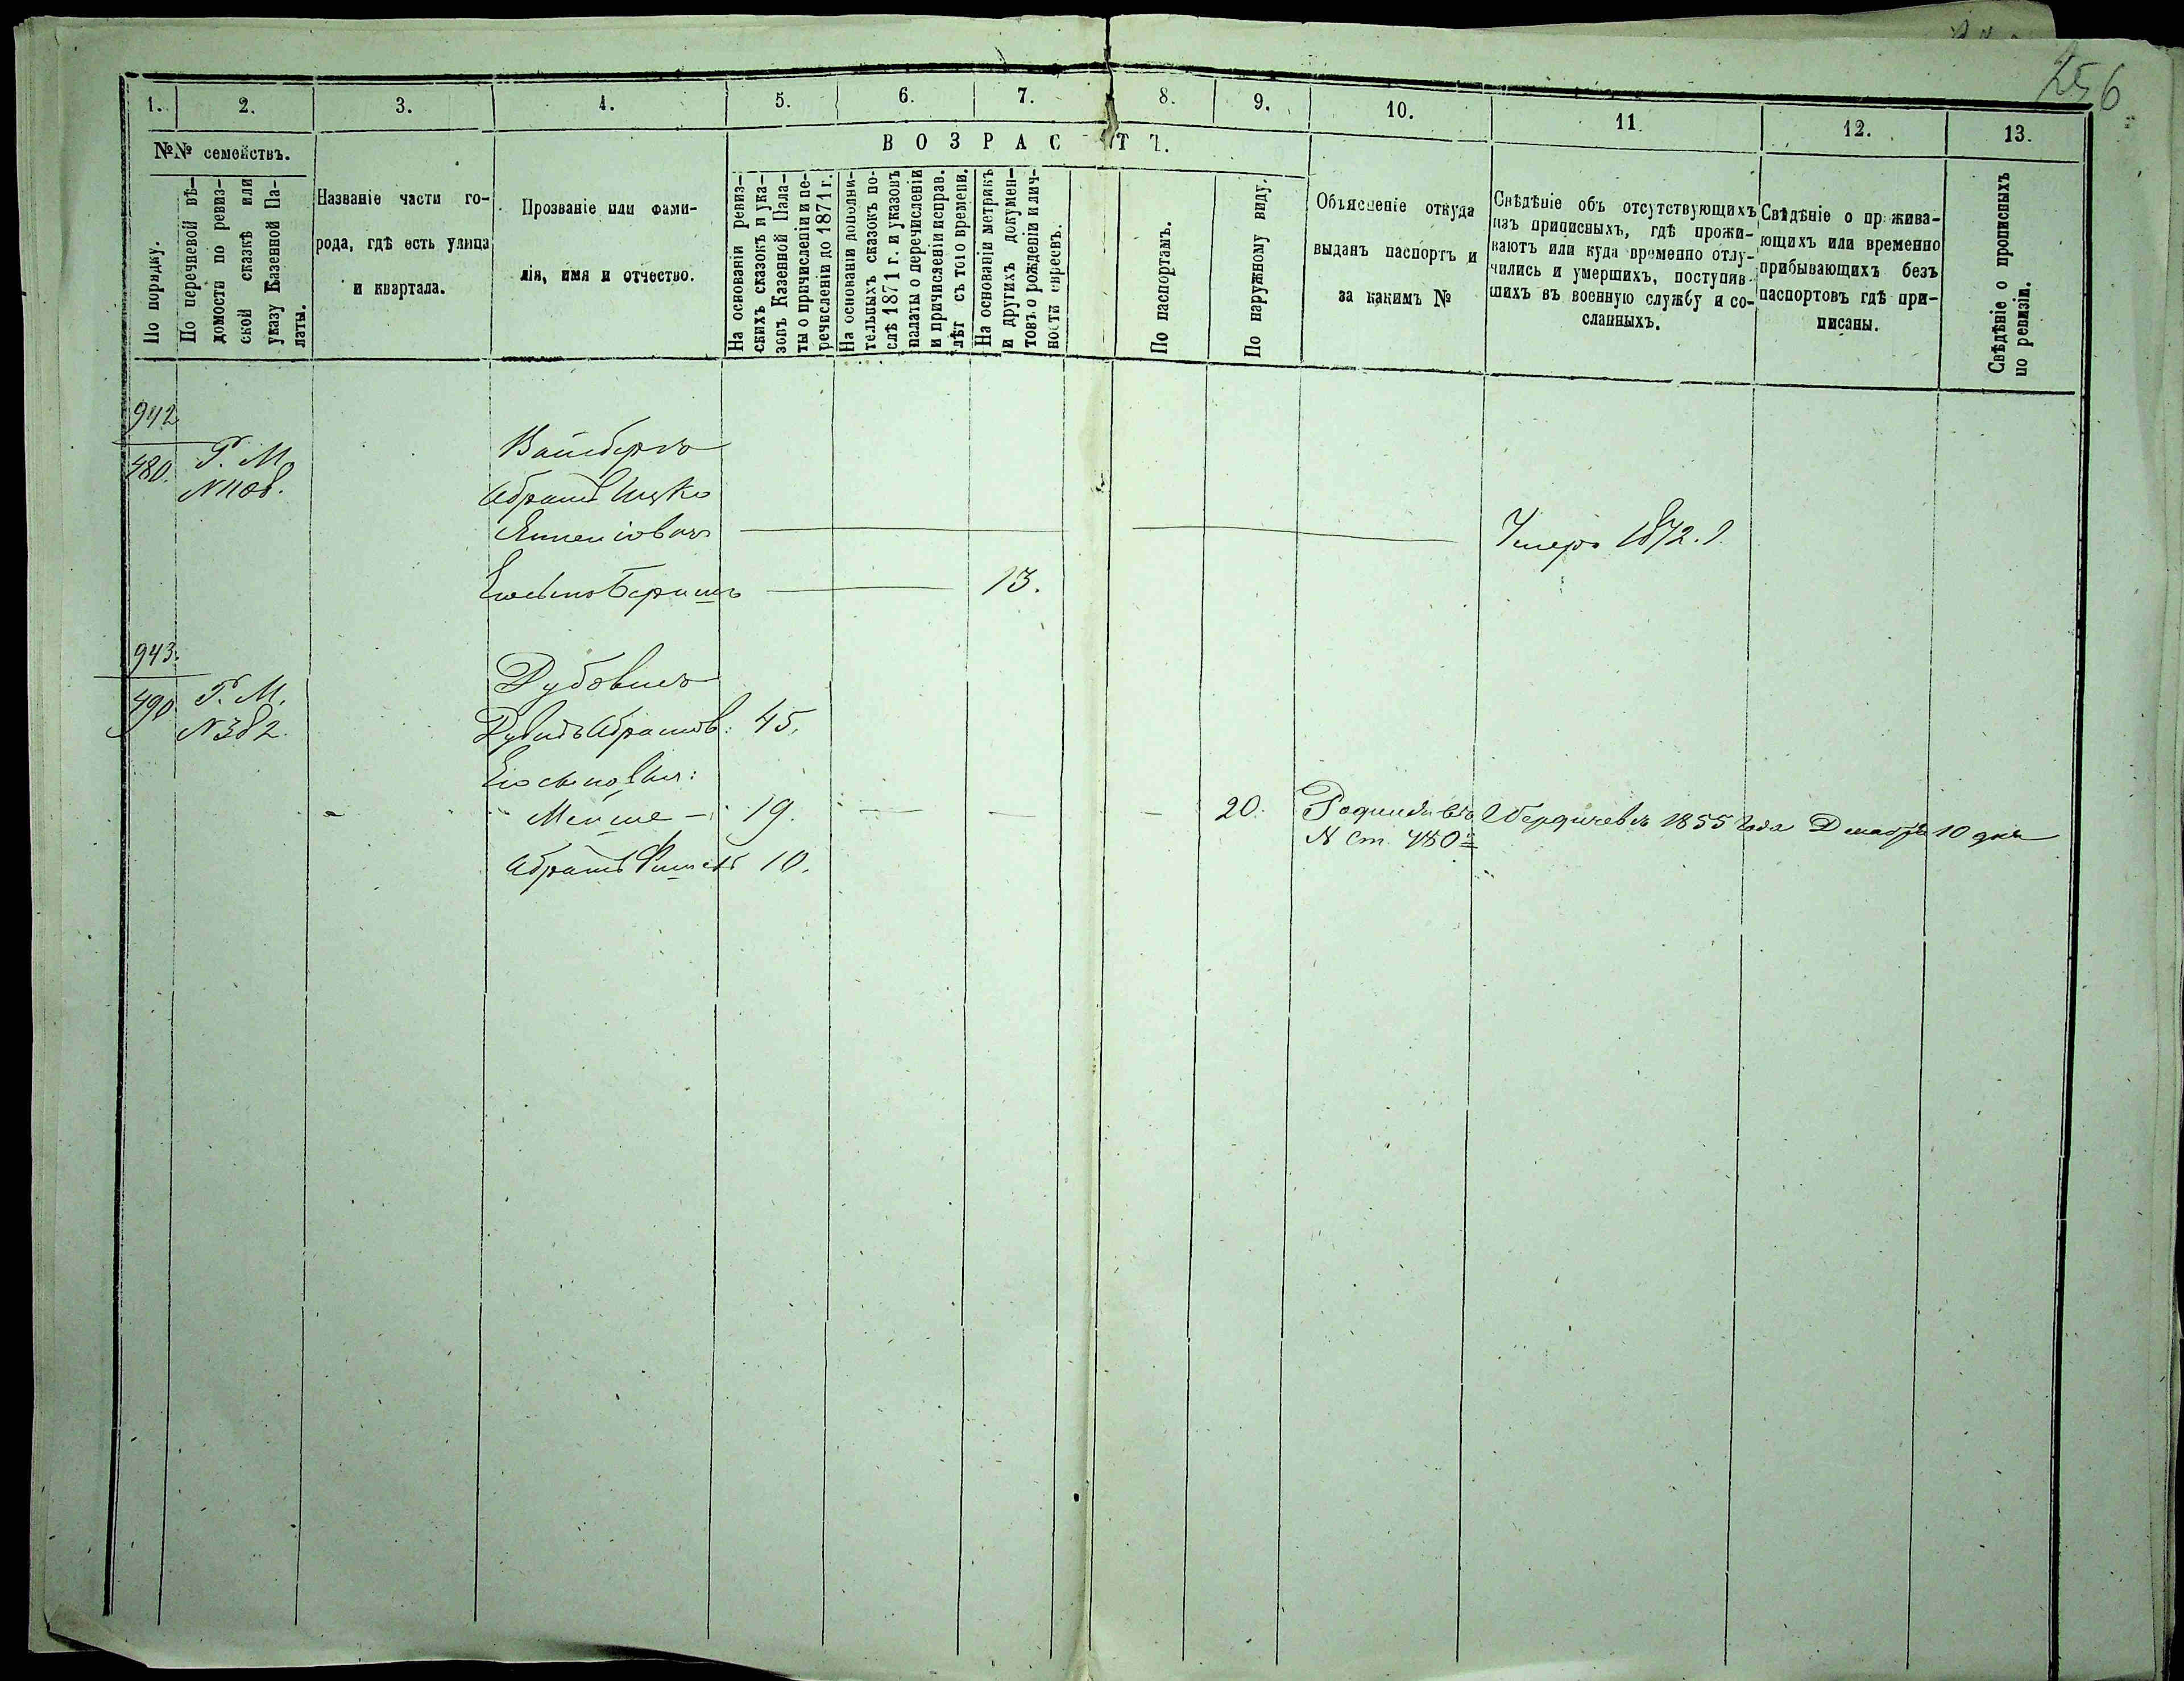 256
1. 2. 3. 4. 5. 6. 7. 8. 9. 10. 11. 12. 13.
№№ семействъ.
По порядку.
По перечневой вѣ-
домости по ревиз-
ской сказкѣ или
указу Казенной Па-
латы.
Названіе части го-
рода, гдѣ есть улица
и квартала.
Прозваніе или фами-
лія, имя и отчество.
ВОЗРАСТЪ.
На основаніи ревиз-
скихъ сказокъ и ука-
зовъ Казенной Пала-
ты о причисленіи и пе-
речисленіи до 1871 г.
На основаніи дополни-
тельныхъ сказокъ по-
слѣ 1871 г. и указовъ
палаты о перечисленіи
и причисленіи исправ.
лѣт съ того времени.
На основаніи метрикъ
и другихъ докумен-
товъ о рожденіи и лич-
ности евреевъ.
По паспортамъ.
По наружному виду.
Объясненіе откуда
выданъ паспортъ и
за какимъ №
Свѣдѣніе объ отсутствующихъ
изъ приписныхъ, гдѣ прожи-
ваютъ или куда временно отлу-
чились и умершихъ, поступив-
шихъ въ военную службу и со-
сланныхъ.
Свѣдѣніе о прожива-
ющихъ или временно
прибывающихъ безъ
паспортовъ гдѣ при-
писаны.
Свѣдѣніе о прописныхъ
по ревизіи.
942
480. Р. М. Вайсбергъ
N 1108. Абрамъ Ицко
Умеръ 1872. г.
Беришъ 13.
943.
490 Р. М. Дубовисъ
N 382. Дувидъ Абрамов: 45.
Мейше 19. 20. Родился въ г. Бердичевѣ 1855 года Декабря 10 дня
N ст. 480
Абрамъ Фишель 10.